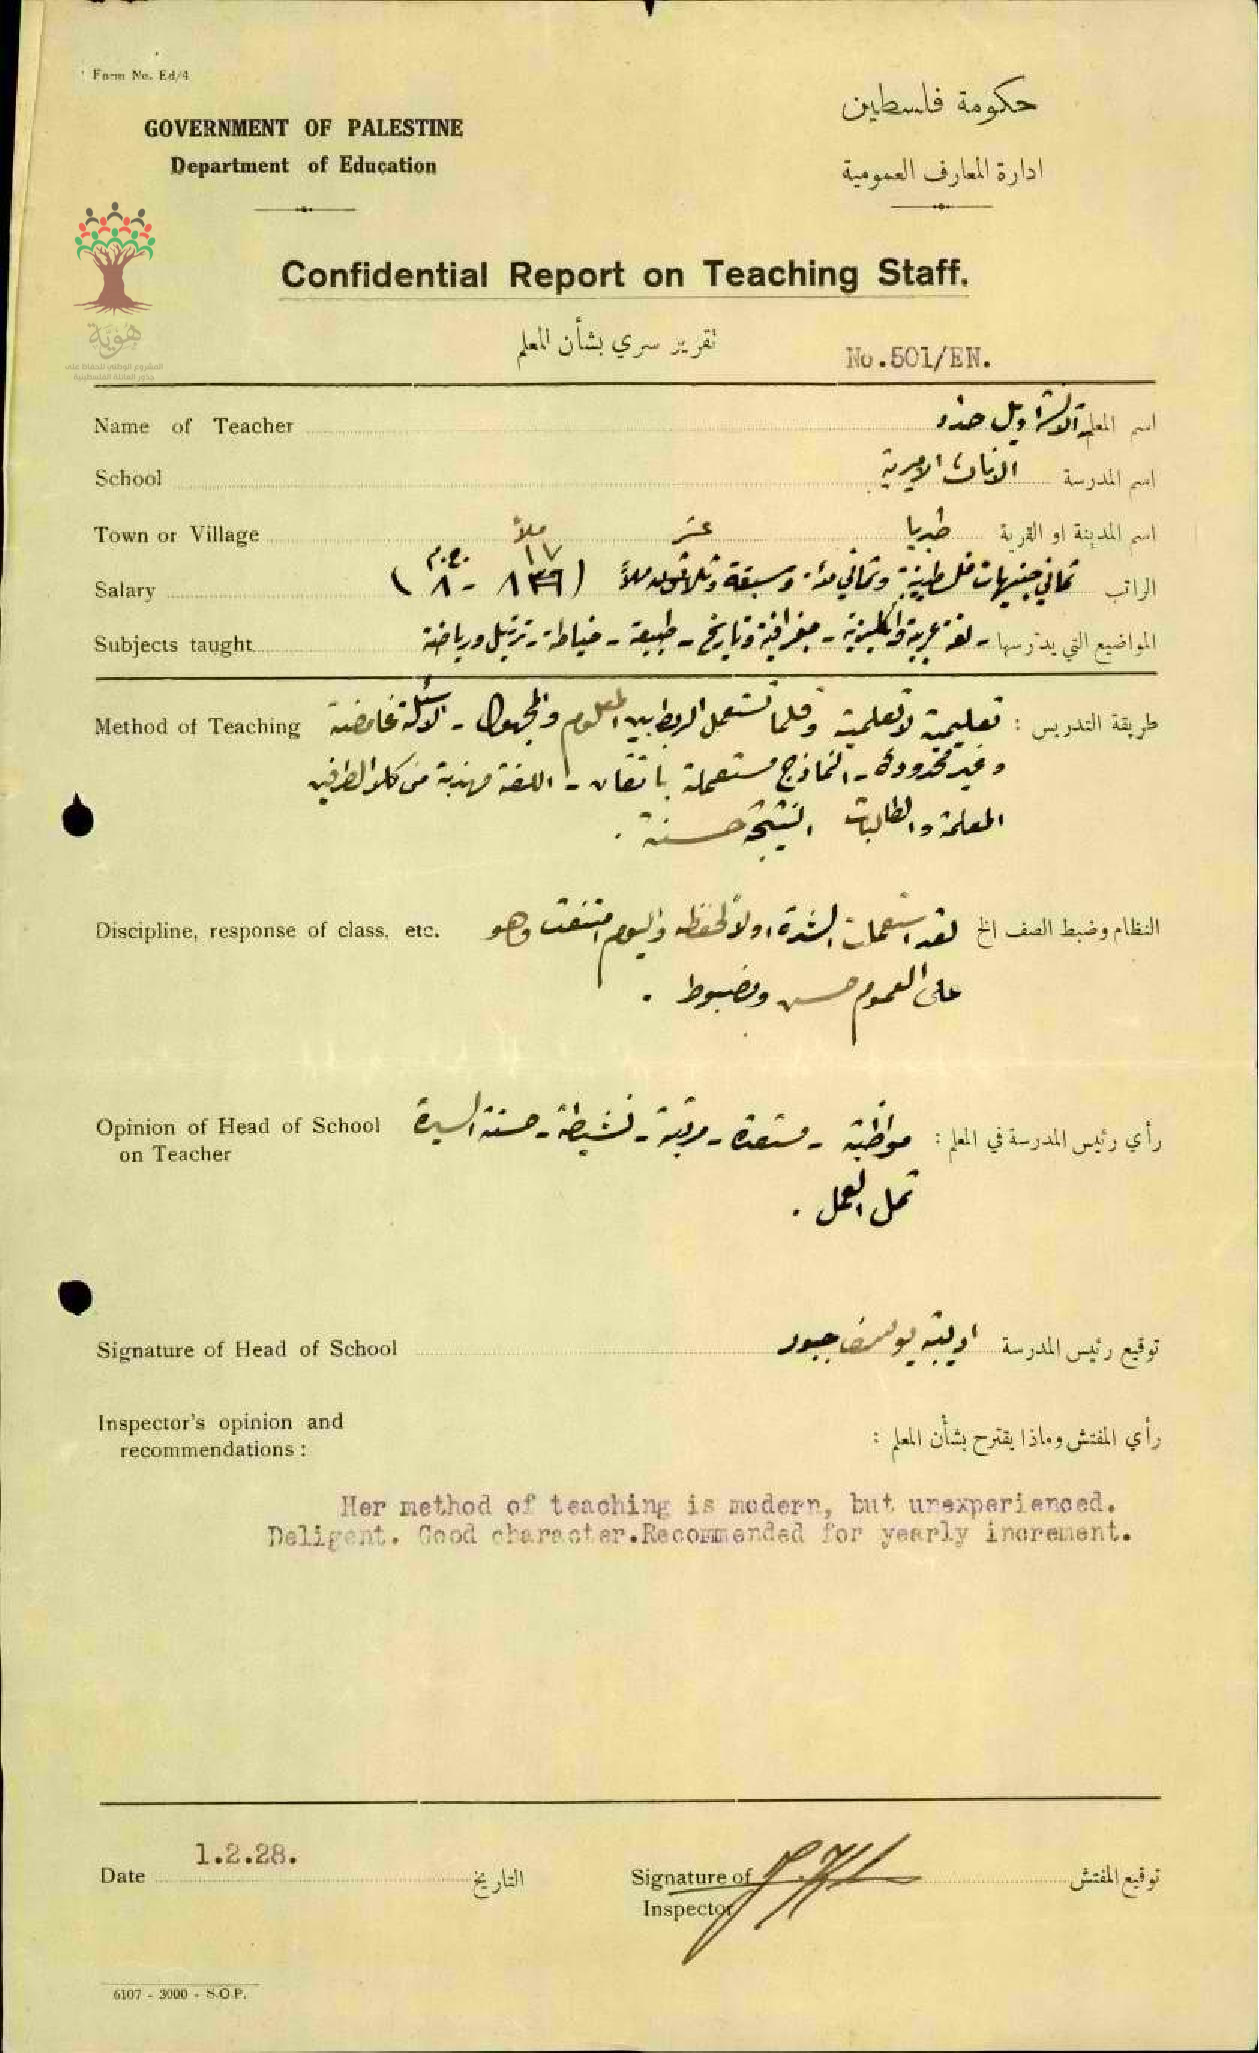 Form No. Ed/4
GOVERNMENT OF PALESTINE
Department of Education
حكومة فلسطين
ادارة المعارف العمومية
هُوِيَّة
المشروع الوطني للحفاظ على
جذور العائلة الفلسطينية
Confidential Report on Teaching Staff.
تقرير سري بشأن المعلم
No.501/EN.
Name of Teacher اسم المعلم
School اسم المدرسة الاناث الاميرية
Town or Village اسم المدينة او القرية طبريا
عشر ملاً ١٧ ج.م
Salary الراتب ثماني جنيهات فلسطينية وثماني مئة وسبعة وثلاثون ملاً (٨٣٩ - ٨)
Subjects taught المواضيع التي يدرسها - لغة عربية وانكليزية - جغرافية وتاريخ - طبيعة - خياطة - ترتيل ورياضة
Method of Teaching طريقة التدريس : تعليمية لا تعلمية وقلما تستعمل الربط بين المعلوم والمجهول - الاسئلة غامضة
وغير محدودة - النماذج مستعملة باتقان - اللغة مهذبة من كلا الطرفين
المعلمة والطالبات النتيجة حسنة .
Discipline, response of class, etc. النظام وضبط الصف الخ لقد استعملت الشدة اولاً لحفظه واليوم وهو
على العموم حسن ومضبوط .
Opinion of Head of School رأي رئيس المدرسة في المعلم : مواظبة - مستعدة - مرتبة - نشيطة - حسنة السيرة
on Teacher
العمل .
Signature of Head of School توقيع رئيس المدرسة اديبه يوسف جبور
Inspector's opinion and
recommendations :
رأي المفتش وماذا يقترح بشأن المعلم :
Her method of teaching is modern, but unexperienced.
Deligent. Good character.Recommended for yearly increment.
Date 1.2.28. التاريخ
Signature of توقيع المفتش
Inspector
6107 - 3000 - S.O.P.